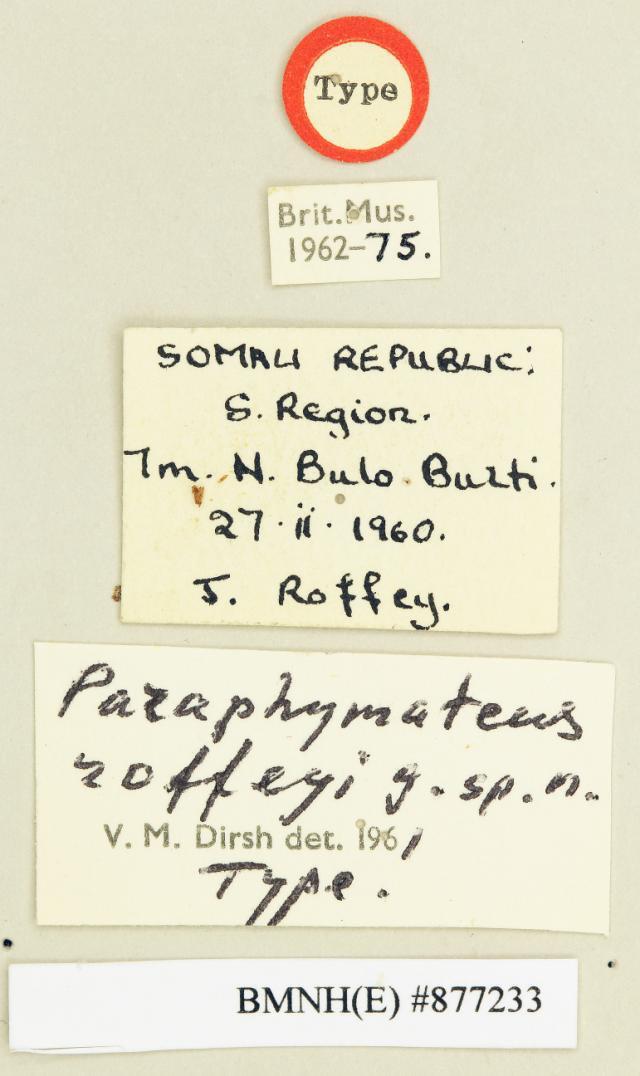 Type
Brit.Mus.
1962-75.
SOMALI REPUBLIC:
S. Region.
7m. N. Bulo Burti.
27.ii.1960.
J. Roffey.
Paraphymateus
roffeyi g.sp.n.
V. M. Dirsh det. 1961
Type.
BMNH(E) #877233